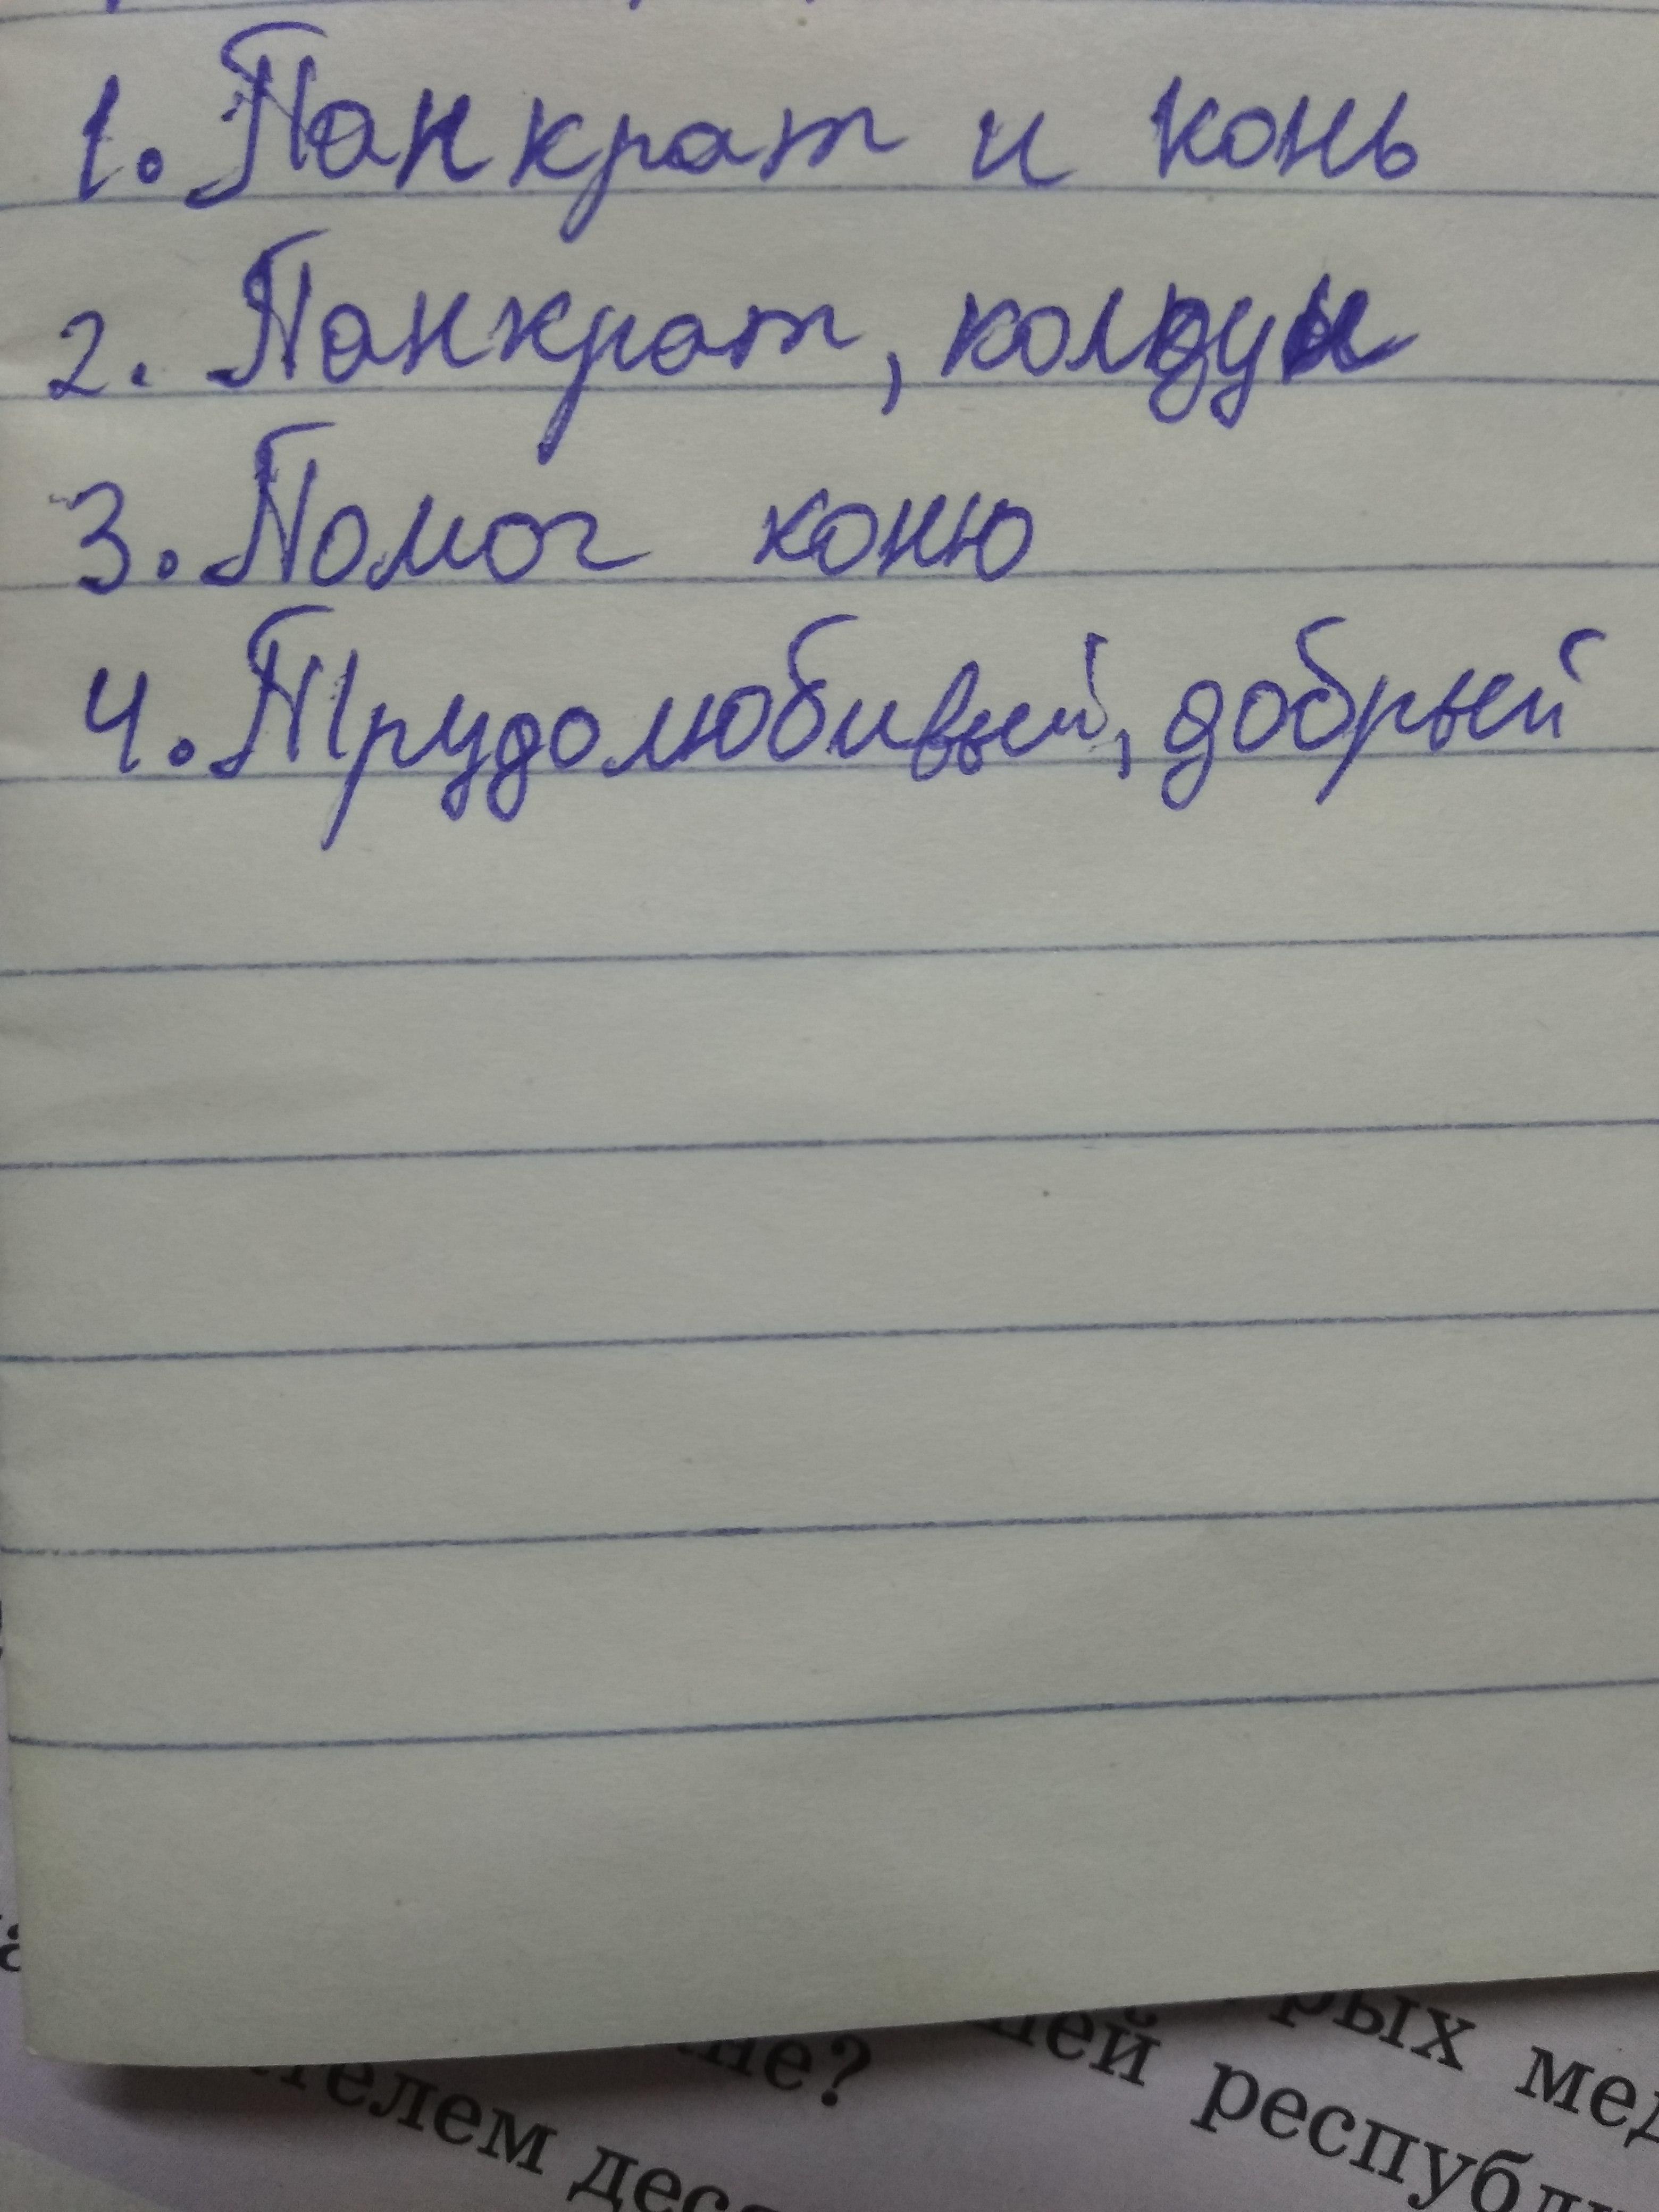 1. Панкрат и конь
2. Панкрат, колдун
3. Помог коню
4. Трудолюбивый, добрый
рых
шей республ
не?
телем деся